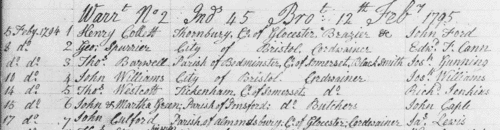 Warrt. No 2 Ind 45 Bro t. 12th Feby 1795
5 Feby. 1794 1 Henry Collett Thornbury, C. of Glocester Brazier &c John Ford
8 do. 2 Geo. Spurrier City of Bristol Cordwainer Edwd. T. Cann
do do. 3 Thos. Barwell Parish of Bedminster C. of Somerset, Black Smith Jos. Gunning
10 do. 4 John Williams City of Bristol Cordwainer Jos. Williams
14 do. 5 Thos. Westcott Tickenham, C. of Somerset do. Richd. Jenkins
16 do. 6 John & Martha Green, Parish of do. Butchers John Caple
17 do. 7 John Parish of Almondsbury C. of Glocester, Cordwainer Jas. Lewis